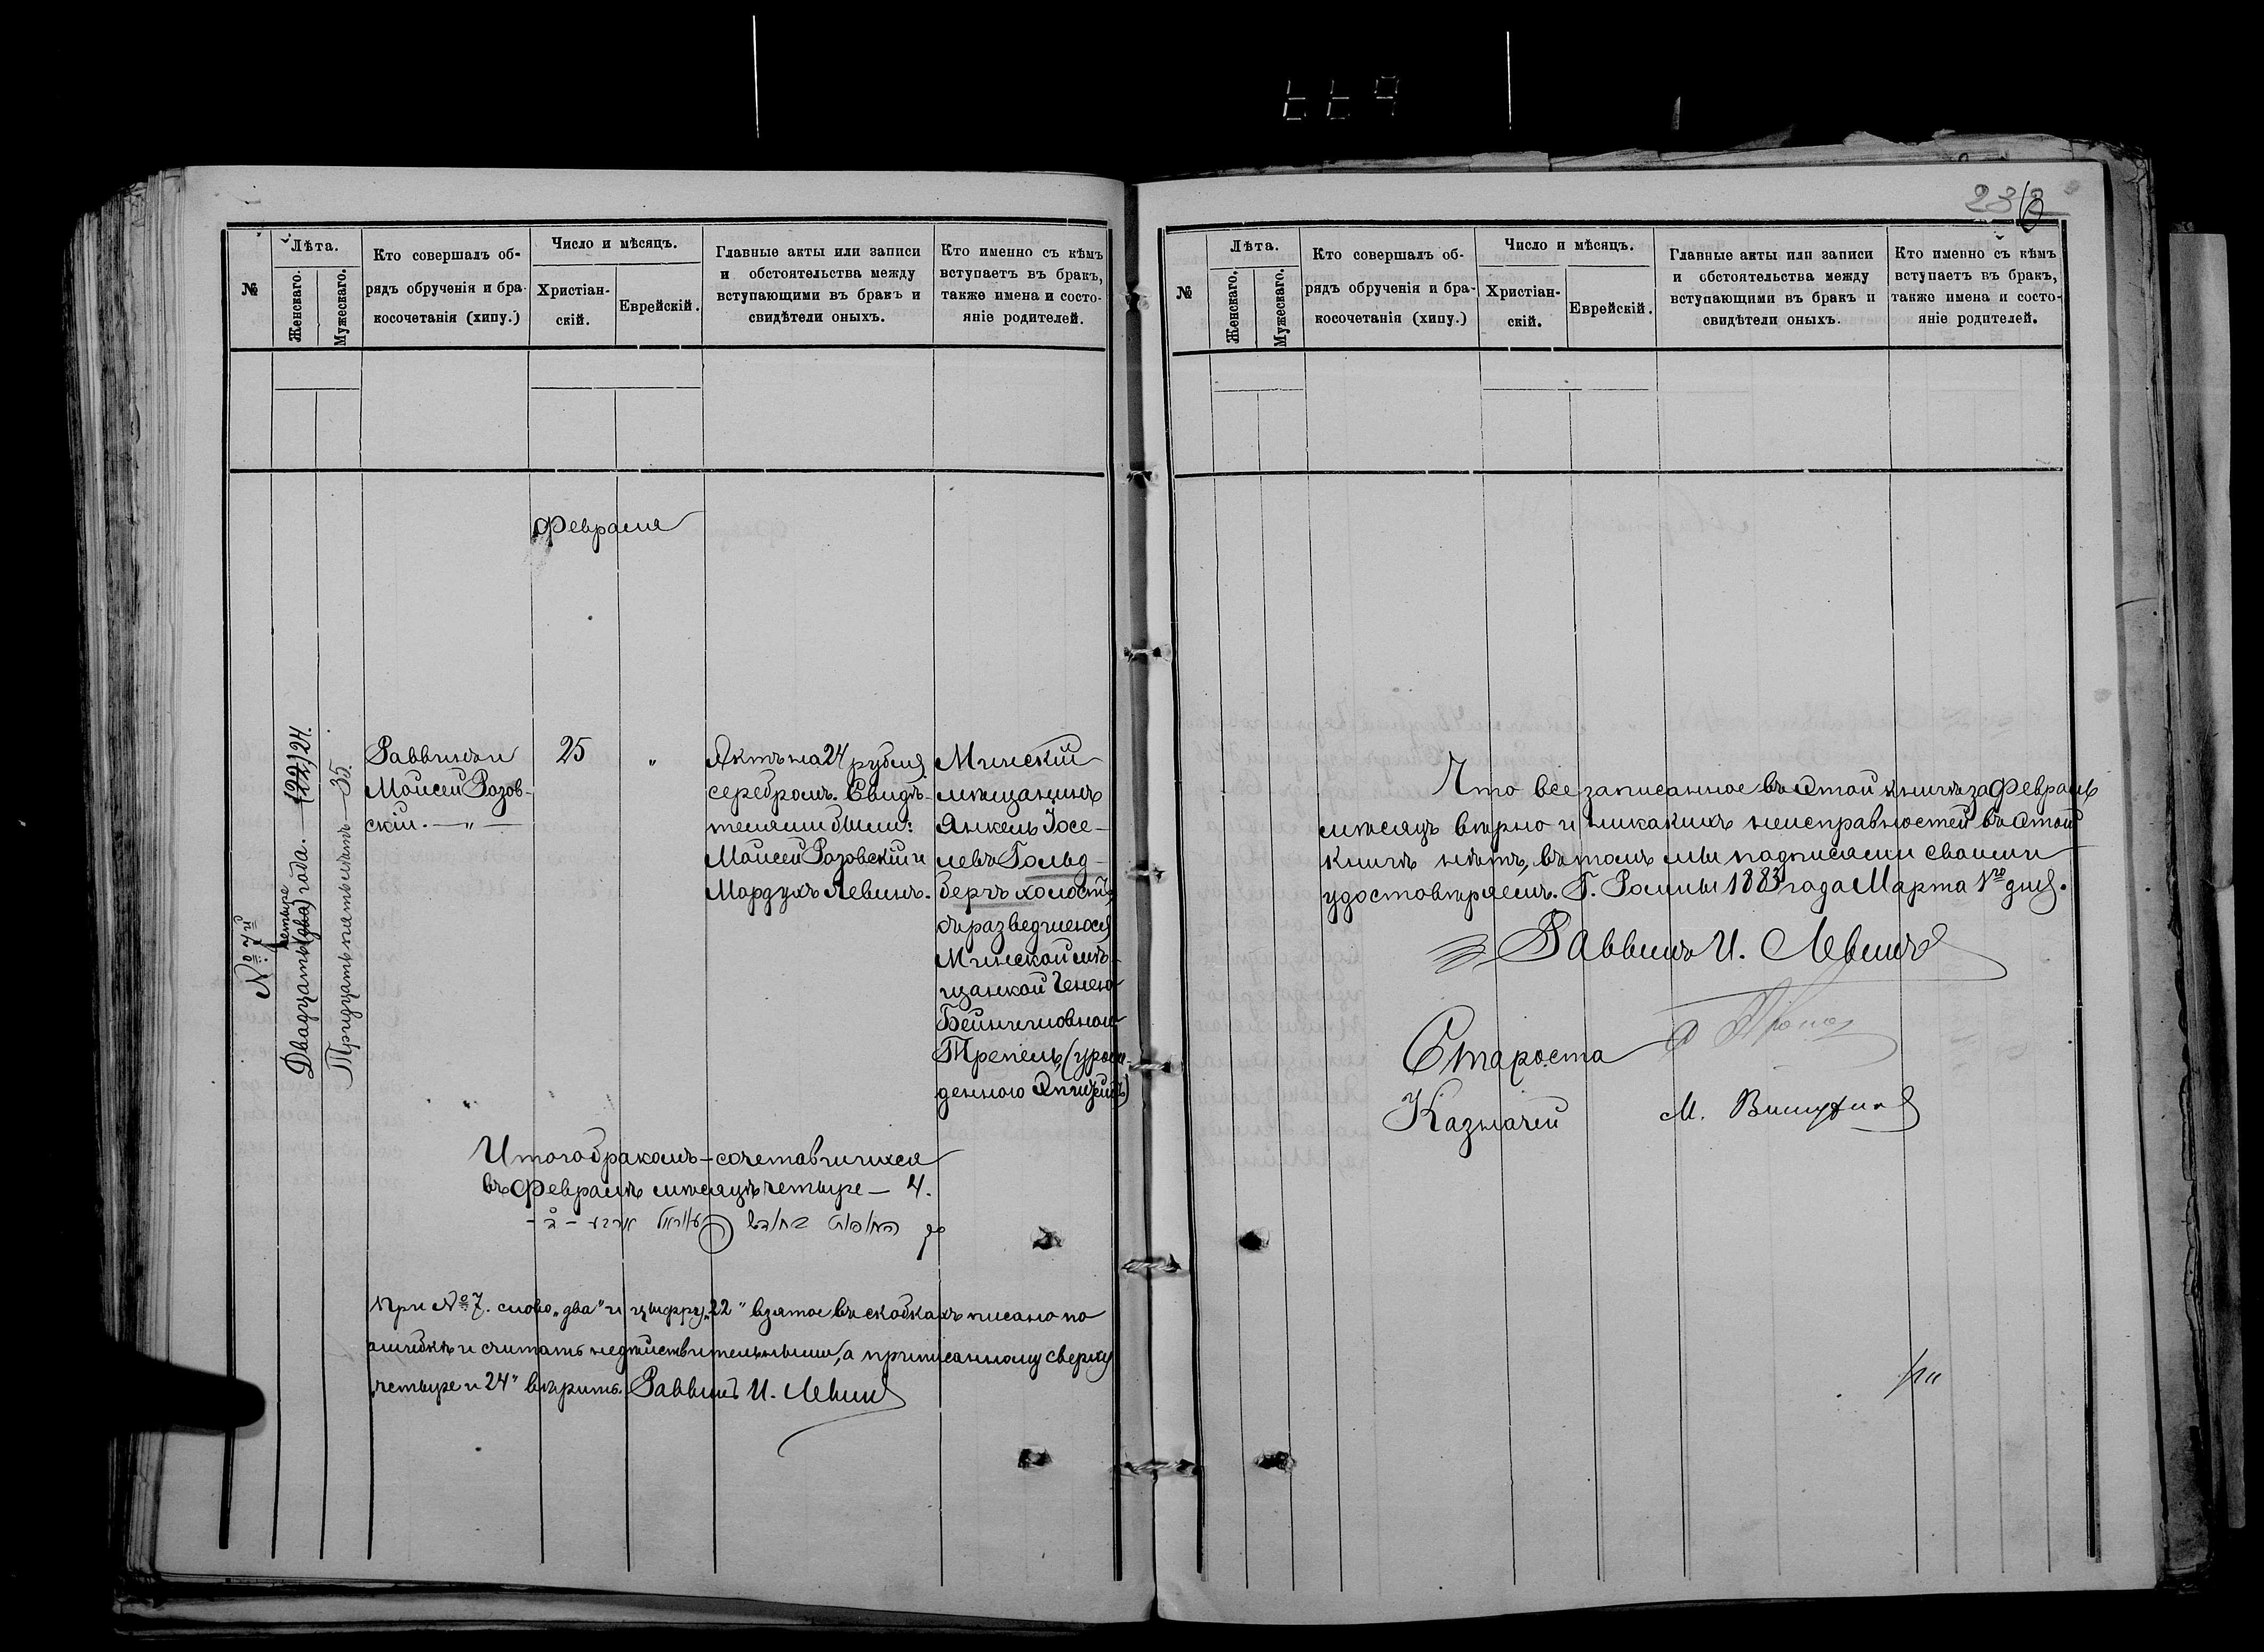 236
№
Лѣта.
Женскаго.
Мужескаго.
Кто совершалъ об-
рядъ обрученія и бра-
косочетанія (хипу.)
Число и мѣсяцъ.
Христіан-
скій.
Еврейскій.
Главные акты или записи
и обстоятельства между
вступающими въ бракъ и
свидѣтели оныхъ.
Кто именно съ кѣмъ
вступаетъ въ бракъ,
также имена и состо-
яніе родителей.
Февраля
№ 7й
четыре
Двадцать (два) года. — (22) 24.
Тридцать пять лѣтъ — 35.
Раввинъ и
Моисей Розов-
скій. — „ —
25
„
Актъ на 24 рубля
серебромъ. Свидѣ-
телями были:
Моисей Розовскій и
Мордухъ Левинъ.
Минскій
мѣщанинъ
Янкель Іосе-
левъ Гольд-
бергъ холостъ,
съ разведшеюся
Минской мѣ-
щанкой Генею
Бейнишовною
Трепель, (урож-
денною)
Итого бракомъ-сочетавшихся
въ Февралѣ мѣсяцѣ четыре — 4.
При № 7. слово „два" и цыфру „22" взятое въ скобкахъ писано по
ошибкѣ и считать недѣйствительными, а приписанному сверху
„четыре и 24" вѣрить. Раввинъ И. Левинъ
№
Лѣта.
Женскаго.
Мужескаго.
Кто совершалъ об-
рядъ обрученія и бра-
косочетанія (хипу.)
Число и мѣсяцъ.
Христіан-
скій.
Еврейскій.
Главные акты или записи
и обстоятельства между
вступающими въ бракъ и
свидѣтели оныхъ.
Кто именно съ кѣмъ
вступаетъ въ бракъ,
также имена и состо-
яніе родителей.
Что все записанное въ этой книгѣ за Февраль
мѣсяцъ вѣрно и никакихъ неисправностей въ этой
книгѣ нѣтъ, въ томъ мы подписями своими
удостовѣряемъ. Г. Ромны 1883 года Марта 1го дня.
Раввинъ И. Левинъ
Староста
Казначей М.